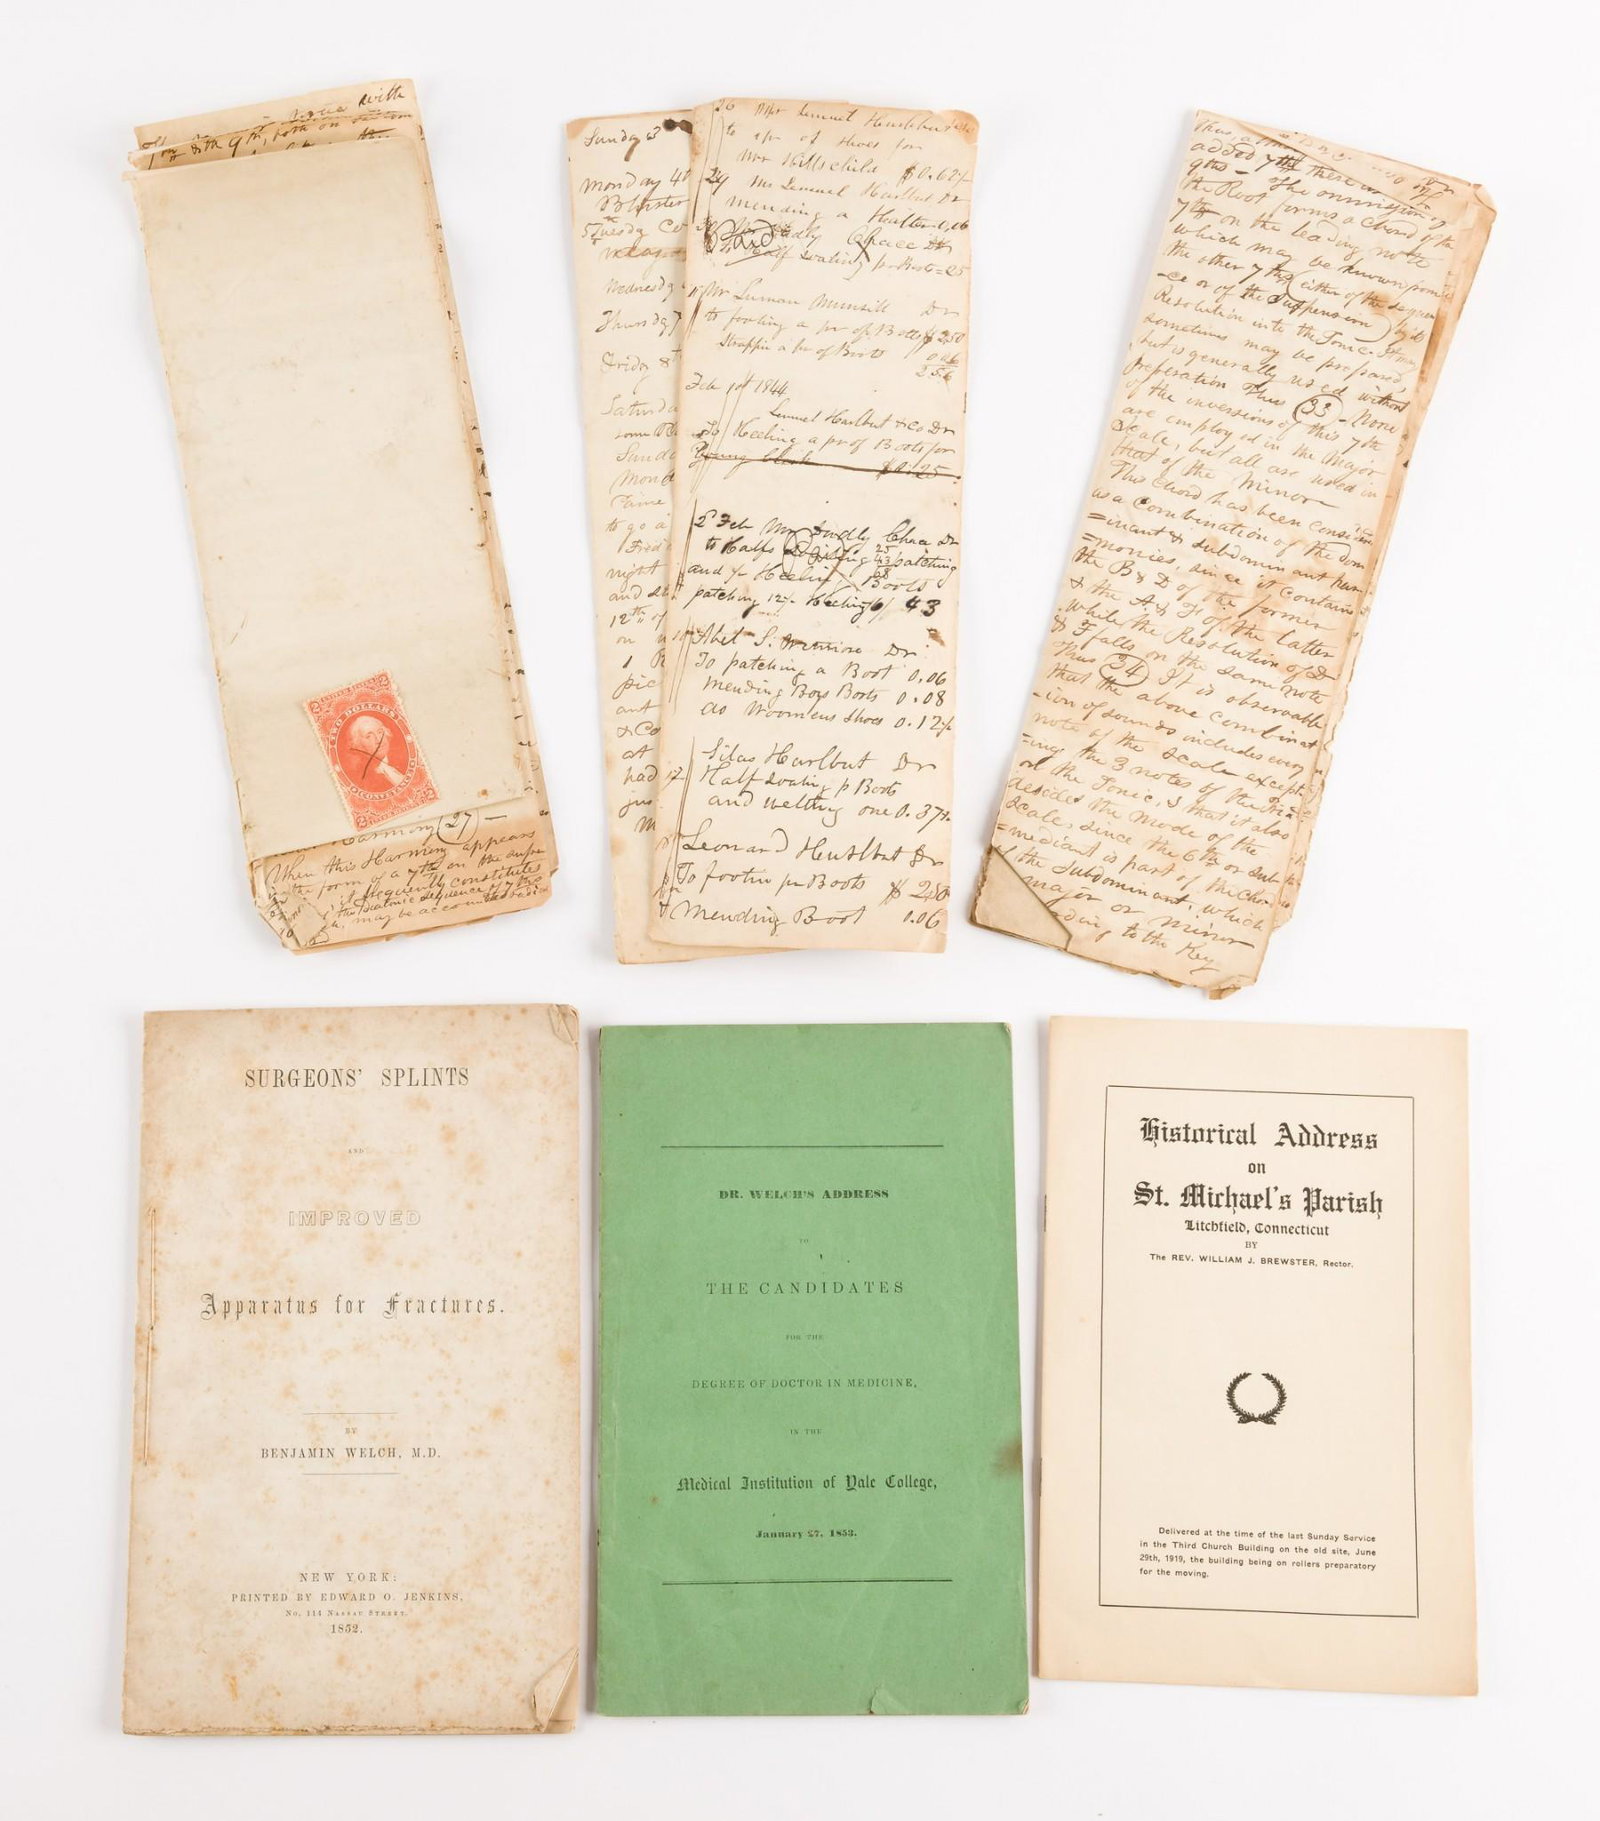 with
27
When this Harmony appears
in the form of a 7th on the
it frequently constitutes
may be accounted
2
TWO DOLLARS
2
Sunday 3
Monday 4th
Blister
5 Tuesday
Wednesday
Thursday 7
Friday 8th
Saturda
Sund
Mond
to go a
night
and
12th of
on
at
had
26 Mr Lemuel Hurlbut
to 1 pr of Shoes for
Mrs Hills child $0.62½
Mr Lemuel Hurlbut Dr
mending a Halter 0,06
Paid Chace Dr
Half soaling pr Boots = 25
Mr Luman Munsill Dr
to footing a pr of Boots $ 2,50
Strappin a pr of Boots 0 06
2 56
Feb 1st 1844
Lemuel Hurlbut & Co Dr
To Heeling a pr of Boots for
Young Clerk $0.25
2d Feb Mr Dudly Chace Dr
to Halfs Soaling 25 patching
and Heeling Boots
patching 12½ Heeling 6/ 43
Abel S. Dr
To patching a Boot 0.06
mending Boys Boots 0.08
do Woomens Shoes 0.12½
17 Silas Hurlbut Dr
Half soaling pr Boots
and welting one 0.37½
Leonard Hurlbut Dr
To footin pr Boots $ 2.50
Mending Boot 0.06
Thus, a
added 7th there is
9ths - The ommission of
the Root forms a Chord of the
7th on the leading note
which may be known from
the other 7ths (either of the Sequen
=ce or of the Suspension) by its
Resolution into the Tonic. It may
sometimes may be prepared,
but is generally used without
preperation Thus (33) - None
of the inversions of this 7th
are employed in the Major
Scale, but all are used in
that of the Minor
This Chord has been consider
as a Combination of the dom
=inant & Subdominant har
=monies, since it contains
the B & D of the former
& the A & F of the latter
while the Resolution of D
& F falls on the same note
thus (34) It is observable
that the above combinat
=ion of sounds includes every
note of the Scale except
=ing the 3 notes of the
of the Tonic, & that it also
decides the Mode of the
Scale, since the 6th or Sub
=mediant is part of the Chor
of the Subdominant, which
major or minor
to the Key
SURGEONS' SPLINTS
AND
IMPROVED
Apparatus for Fractures.
BY
BENJAMIN WELCH, M.D.
NEW YORK:
PRINTED BY EDWARD O. JENKINS,
No. 114 Nassau Street.
1852.
DR. WELCH'S ADDRESS
TO
THE CANDIDATES
FOR THE
DEGREE OF DOCTOR IN MEDICINE,
IN THE
Medical Institution of Yale College,
January 27, 1853.
Historical Address
on
St. Michael's Parish
Litchfield, Connecticut
BY
The REV. WILLIAM J. BREWSTER, Rector.
Delivered at the time of the last Sunday Service
in the Third Church Building on the old site, June
29th, 1919, the building being on rollers preparatory
for the moving.